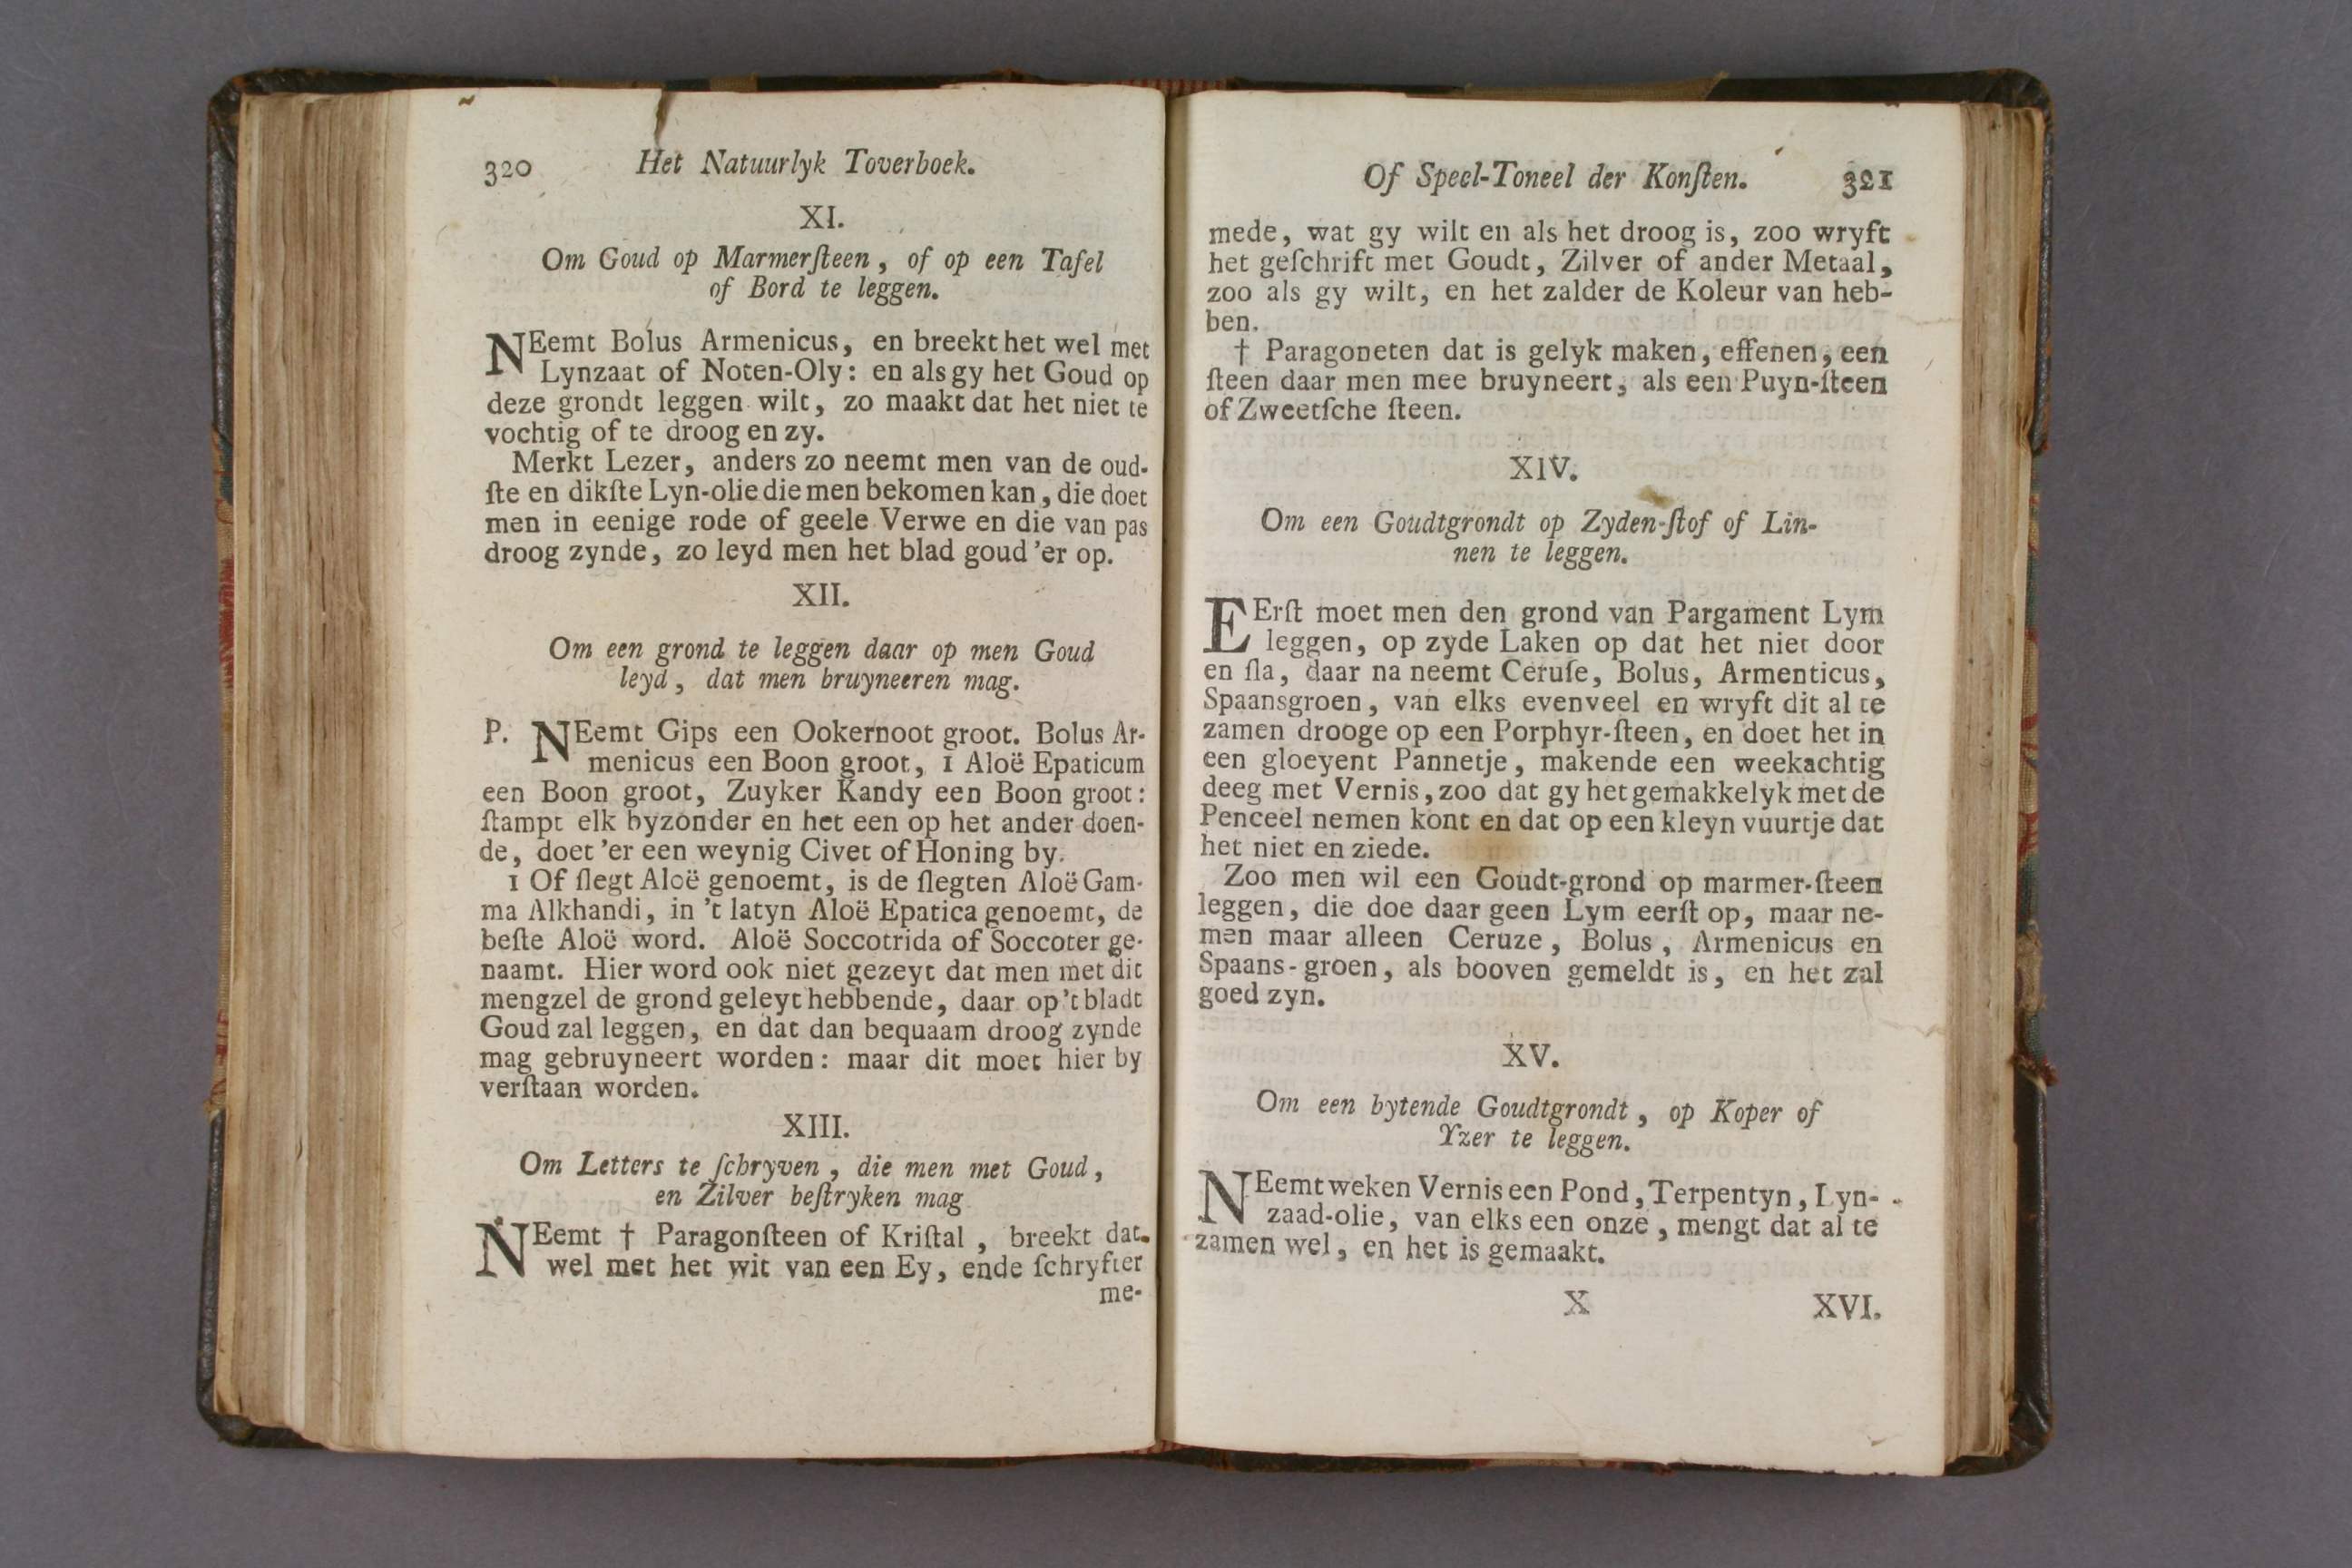 320 Het Natuurlyk Toverboek.
XI.
Om Goud op Marmerſteen, of op een Tafel
of Bord te leggen.
NEemt Bolus Armenicus, en breekt het wel met
Lynzaat of Noten-Oly: en als gy het Goud op
deze grondt leggen wilt, zo maakt dat het niet te
vochtig of te droog en zy.
Merkt Lezer, anders zo neemt men van de oud-
ſte en dikſte Lyn-olie die men bekomen kan, die doet
men in eenige rode of geele Verwe en die van pas
droog zynde, zo leyd men het blad goud 'er op.
XII.
Om een grond te leggen daar op men Goud
leyd, dat men bruyneeren mag.
P. NEemt Gips een Ookernoot groot. Bolus Ar-
menicus een Boon groot, 1 Aloë Epaticum
een Boon groot, Zuyker Kandy een Boon groot:
ſtampt elk byzonder en het een op het ander doen-
de, doet 'er een weynig Civet of Honing by.
1 Of ſlegt Aloë genoemt, is de ſlegten Aloë Gam-
ma Alkhandi, in 't latyn Aloë Epatica genoemt, de
beſte Aloë word. Aloë Soccotrida of Soccoter ge-
naamt. Hier word ook niet gezeyt dat men met dit
mengzel de grond geleyt hebbende, daar op 't bladt
Goud zal leggen, en dat dan bequaam droog zynde
mag gebruyneert worden: maar dit moet hier by
verſtaan worden.
XIII.
Om Letters te ſchryven, die men met Goud,
en Zilver beſtryken mag
NEemt † Paragonſteen of Kriſtal, breekt dat
wel met het wit van een Ey, ende ſchryfter
me-
Of Speel-Toneel der Konſten. 321
mede, wat gy wilt en als het droog is, zoo wryft
het geſchrift met Goudt, Zilver of ander Metaal,
zoo als gy wilt, en het zalder de Koleur van heb-
ben.
† Paragoneten dat is gelyk maken, effenen, een
ſteen daar men mee bruyneert, als een Puyn-ſteen
of Zweetſche ſteen.
XIV.
Om een Goudtgrondt op Zyden-ſtof of Lin-
nen te leggen.
EErſt moet men den grond van Pargament Lym
leggen, op zyde Laken op dat het niet door
en ſla, daar na neemt Ceruſe, Bolus, Armenticus,
Spaansgroen, van elks evenveel en wryft dit al te
zamen drooge op een Porphyr-ſteen, en doet het in
een gloeyent Pannetje, makende een weekachtig
deeg met Vernis, zoo dat gy het gemakkelyk met de
Penceel nemen kont en dat op een kleyn vuurtje dat
het niet en ziede.
Zoo men wil een Goudt-grond op marmer-ſteen
leggen, die doe daar geen Lym eerſt op, maar ne-
men maar alleen Ceruze, Bolus, Armenicus en
Spaans-groen, als booven gemeldt is, en het zal
goed zyn.
XV.
Om een bytende Goudtgrondt, op Koper of
Yzer te leggen.
NEemt weken Vernis een Pond, Terpentyn, Lyn-
zaad-olie, van elks een onze, mengt dat al te
zamen wel, en het is gemaakt.
X XVI.